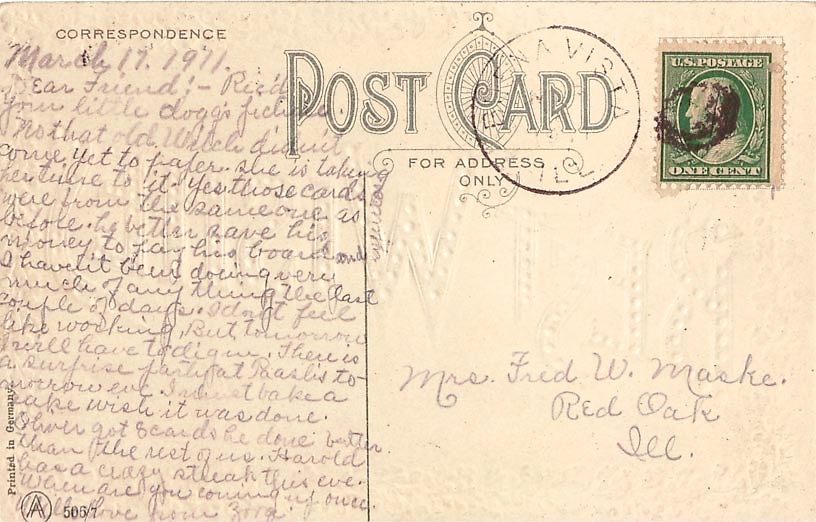 CORRESPONDENCE
March 17. 1911.
Dear Friend:- Rec'd
your little doggs picture
No that old Welch didn't
come yet to paper. she is taking
her time to it. Yes those cards
were from the same one as
before. he better save his
money to pay his board and
I haven't been doing very
much of any thing the last
couple of days. I don't feel
like working. But tomorrow
I will have to dig in. There is
a surprise party at to-
morrow eve. I must bake a
cake wish it was done.
Oliver got 8 cards he done better
than the rest of us. Harold
has a crazy streak this eve.
When are you coming up once
love from
POST CARD
FOR ADDRESS
ONLY
ENA VISTA
ILL
U.S. POSTAGE
ONE CENT
Mrs. Fred W. Maske.
Red Oak
Ill.
Printed in Germany
A 506/7